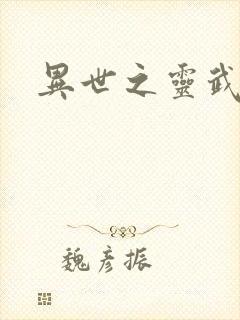 異世之靈武
魏彥振